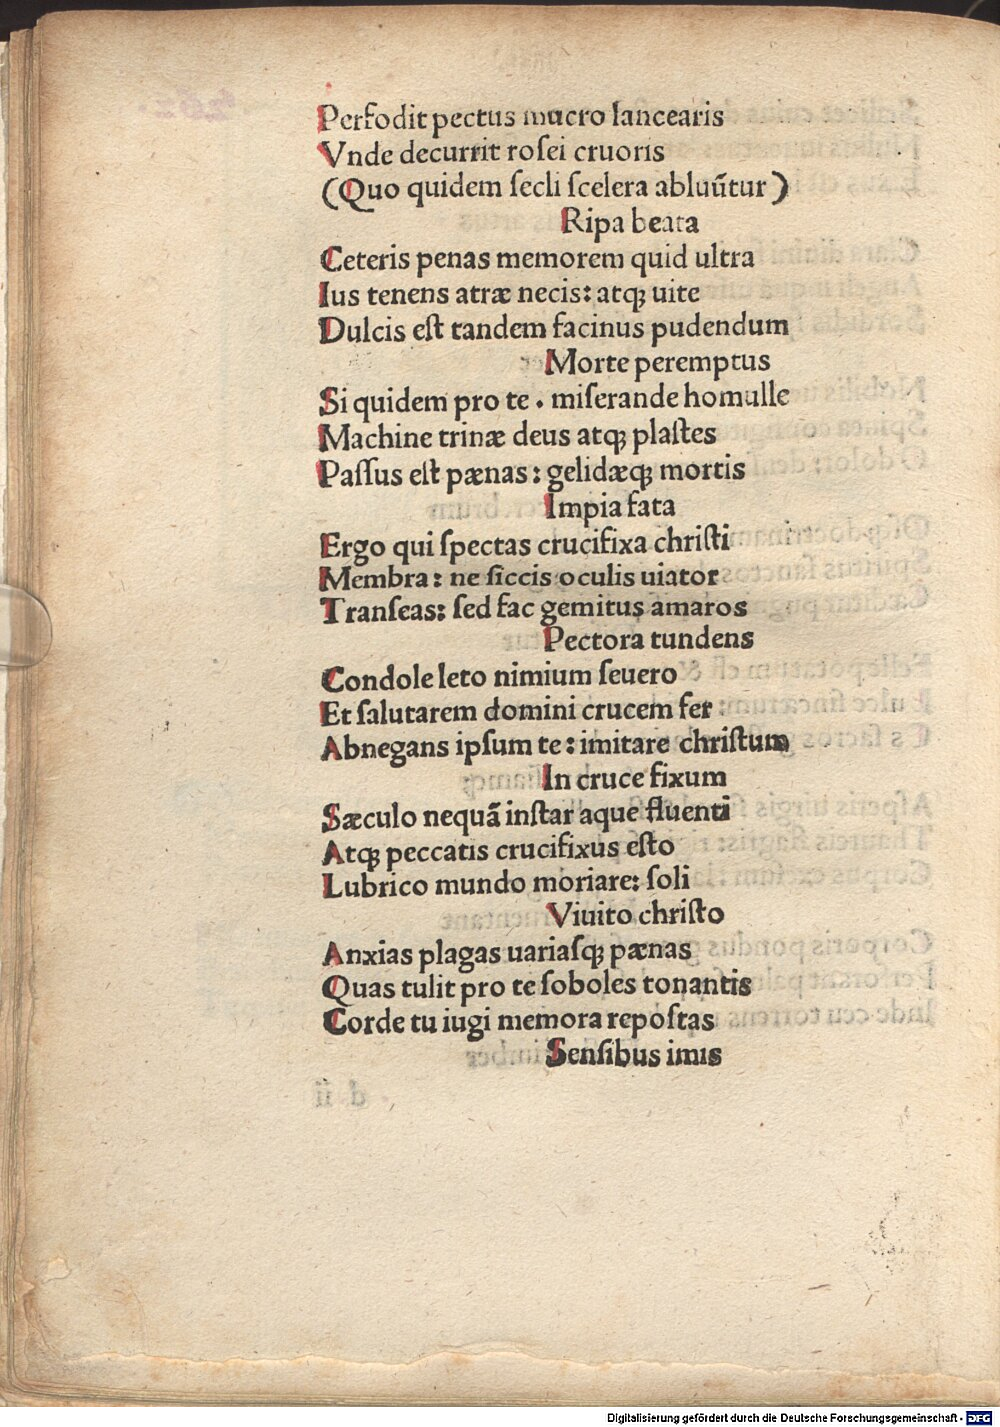 Perfodit pectus mucro lancearis
Vnde decurrit roſei cruoris
(Quo quidem ſecli ſcelera abluũtur)
Ripa beata
Ceteris penas memorem quid ultra
Ius tenens atræ necis: atqꝫ uite
Dulcis eſt tandem facinus pudendum
Morte peremptus
Si quidem pro te . miſerande homulle
Machine trinæ deus atqꝫ plaſtes
Paſſus eſt pænas: gelidæqꝫ mortis
Impia fata
Ergo qui ſpectas crucifixa chriſti
Membra: ne ſiccis oculis uiator
Tranſeas: ſed fac gemitus amaros
Pectora tundens
Condole leto nimium ſeuero
Et ſalutarem domini crucem fer
Abnegans ipſum te: imitare chriſtum
In cruce fixum
Sæculo nequã inſtar aque fluenti
Atqꝫ peccatis crucifixus eſto
Lubrico mundo moriare: ſoli
Viuito chriſto
Anxias plagas uariaſqꝫ pænas
Quas tulit pro te ſoboles tonantis
Corde tu iugi memora repoſtas
Senſibus imis
Digitalisierung gefördert durch die Deutsche Forschungsgemeinschaft - DFG